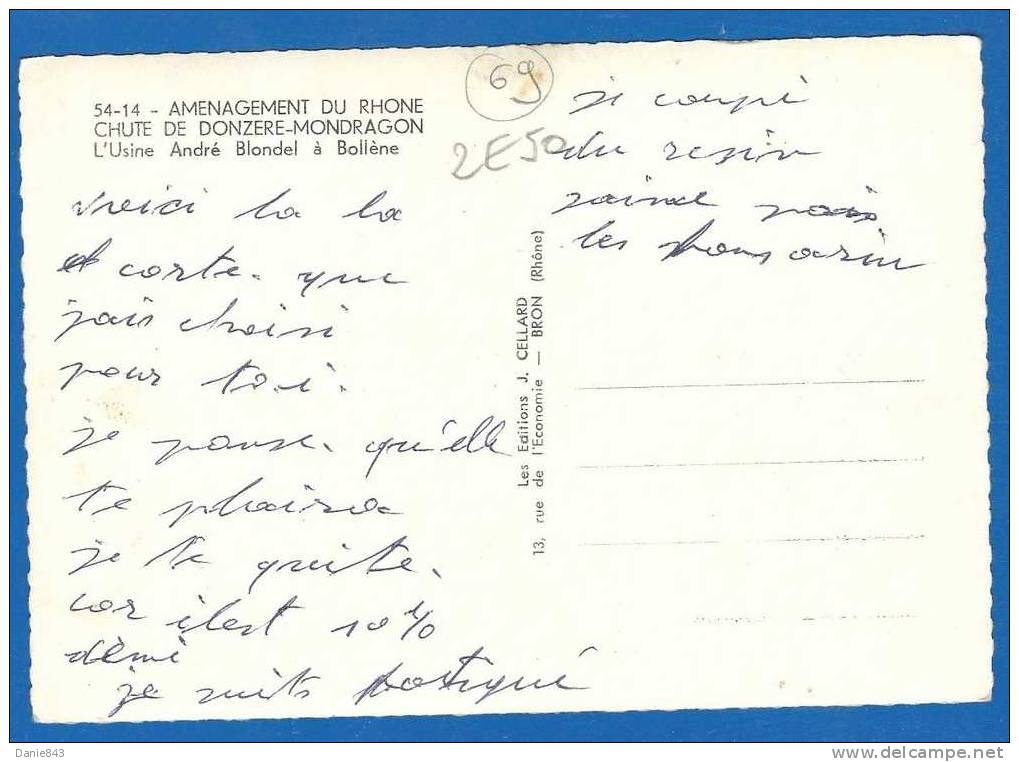 54-14 - AMENAGEMENT DU RHONE
CHUTE DE DONZERE-MONDRAGON
L'Usine André Blondel à Bollène
69
2E50
voici la la
carte. que
jais choisi
pour toi.
je panse. qu'elle
te plaira
je te quite.
car ilest 10 h
démi
je suits fatigué
je coupé
du resin
les
Les Editions J. CELLARD
13, rue de l'Economie — BRON (Rhône)
Danie843
www.delcampe.net